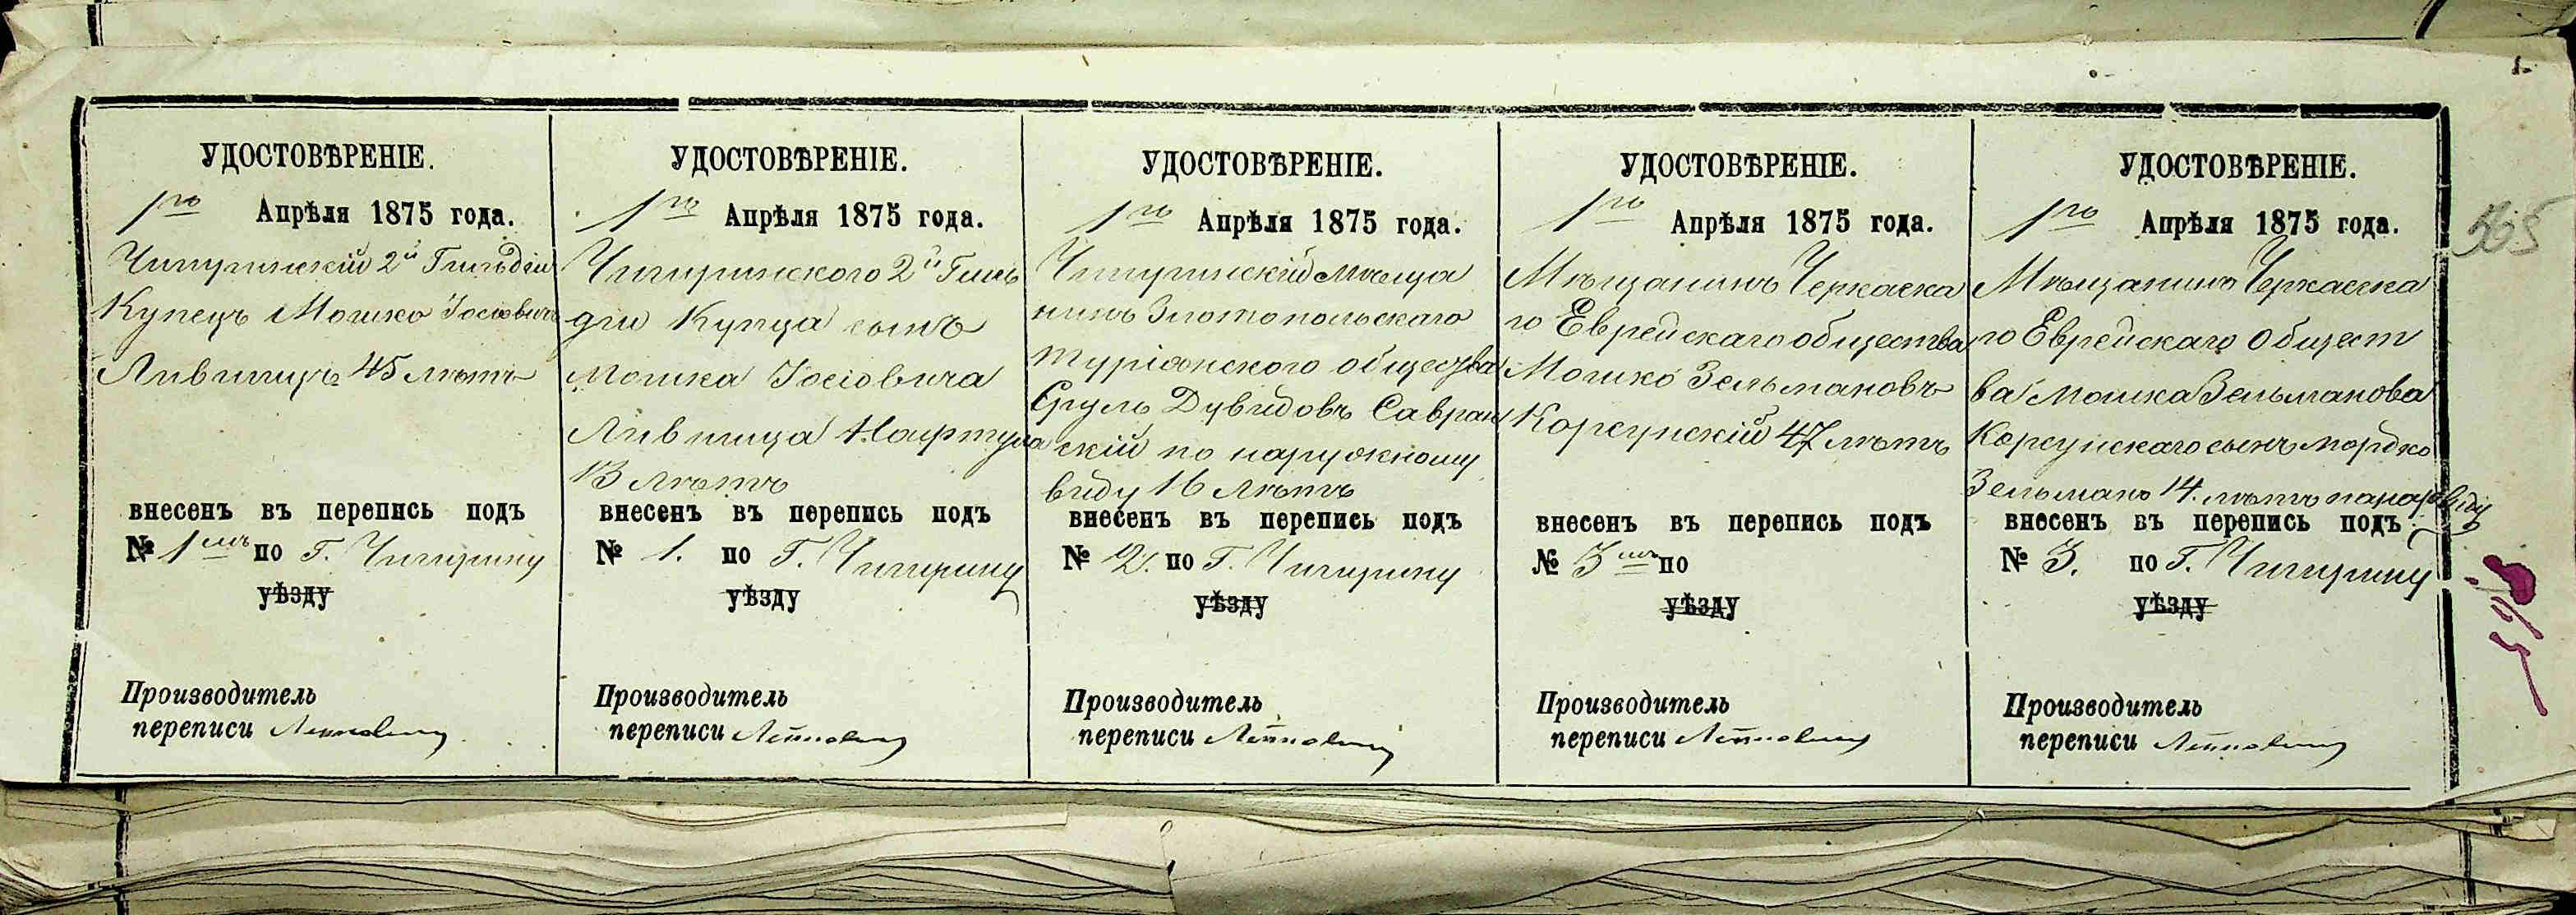 УДОСТОВѢРЕНІЕ.
1го Апрѣля 1875 года.
Чигиринскій 2й Гильдіи
Купецъ Мошко Іосіовичъ
Лившицъ 45 лѣтъ
внесенъ въ перепись подъ
№ 1мъ по Г. Чигирину
уѣзду
Производитель
переписи
УДОСТОВѢРЕНІЕ.
1го Апрѣля 1875 года.
Чигиринского 2й Гиль
діи Купца сынъ
Мошка Іосіовича
Лившица
13 лѣтъ
внесенъ въ перепись подъ
№ 1. по Г. Чигирину
уѣзду
Производитель
переписи
УДОСТОВѢРЕНІЕ.
1го Апрѣля 1875 года.
Чигиринскій мѣща
нинъ Златопольскаго
общества
Сруль Дувидовъ Савран
скій по наружному
виду 16 лѣтъ
внесенъ въ перепись подъ
№ 2. по Г. Чигирину
уѣзду
Производитель
переписи
УДОСТОВѢРЕНІЕ.
1го Апрѣля 1875 года.
Мѣщанинъ Черкаска
го Еврейскаго общества
Мошко Зельмановъ
Корсунскій 47 лѣтъ
внесенъ въ перепись подъ
№ 3мъ по
уѣзду
Производитель
переписи
УДОСТОВѢРЕНІЕ.
1го Апрѣля 1875 года.
Мѣщанинъ Черкаска
го Еврейскаго Общест
ва Мошка Зельманова
Корсунскаго сынъ Мордко
Зельманъ 14. лѣтъ по нар. виду
внесенъ въ перепись подъ
№ 3. по Г. Чигирину
уѣзду
Производитель
переписи